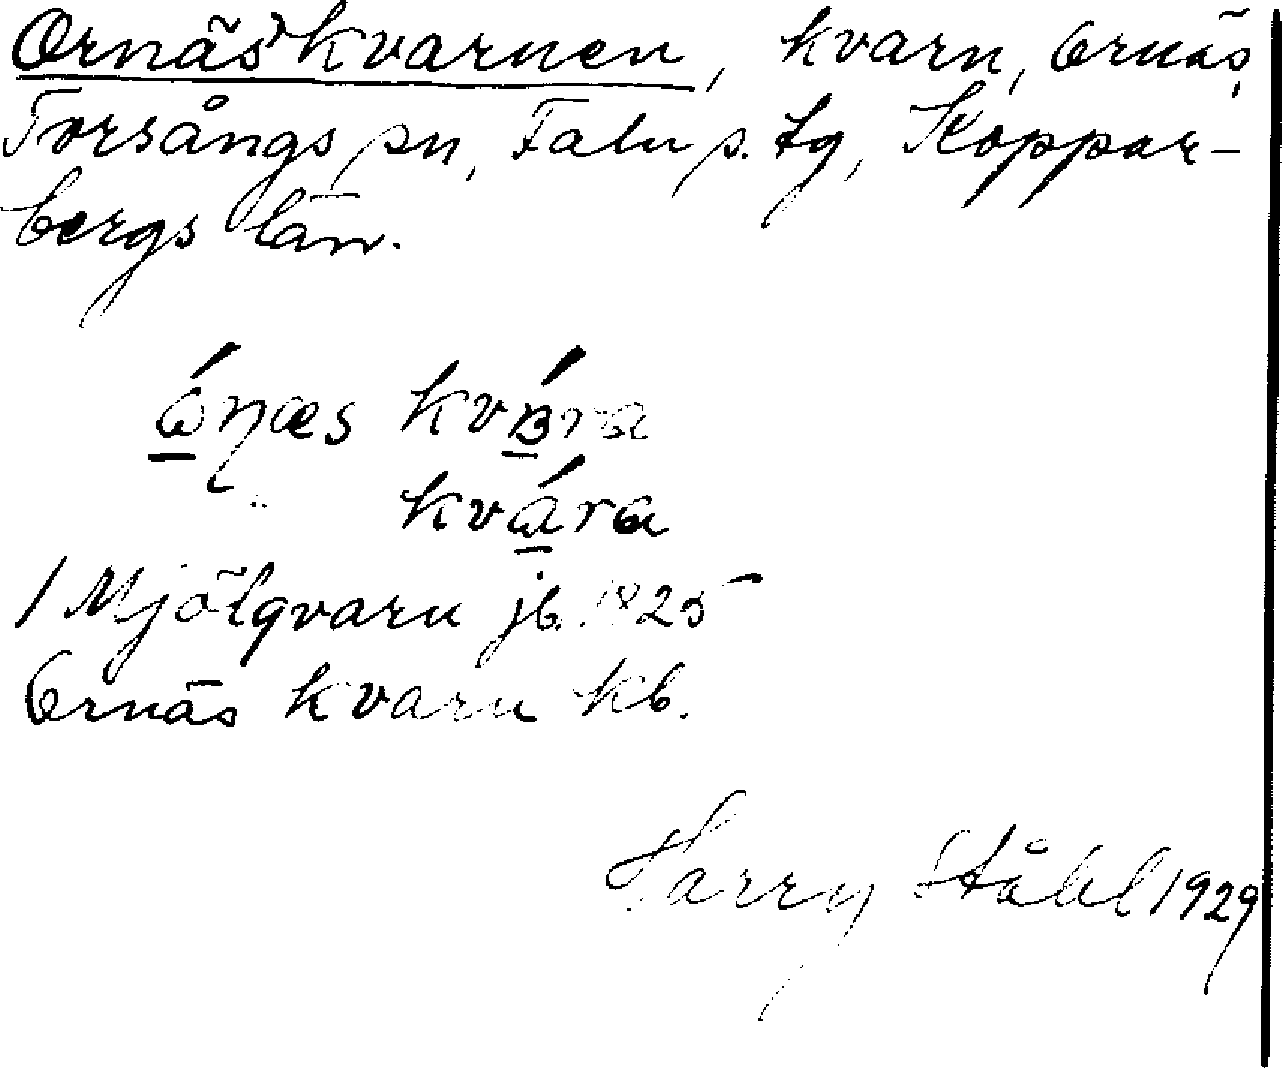 Ornäs kvarnen, kvarn, Ornäs,
Torsångs sn, Falu s. tg, Koppar-
bergs län.
kvára
1 Mjölqvarn jb. 1825
Ornäs kvarn kb.
Harry Ståhl 1929